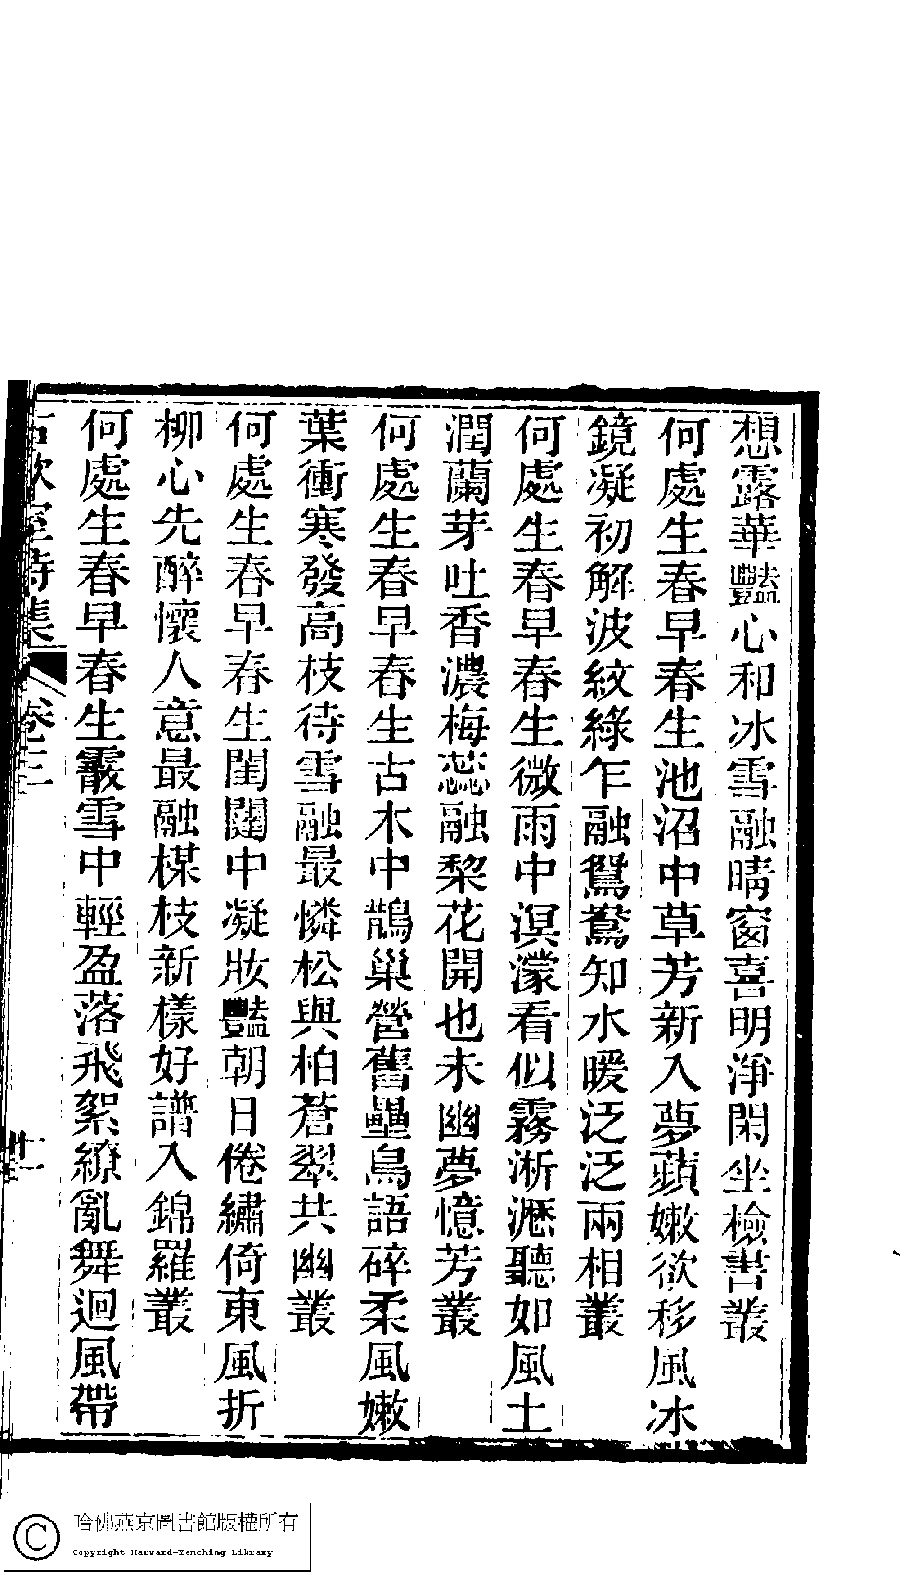 想露華豔心和冰雪融晴窗喜明淨閑坐檢書叢
何處生春早春生池沼中草芳新入夢蘋嫩欲移風冰
鏡凝初解波紋綠乍融鴛鴦知水暖泛泛兩相叢
何處生春早春生微雨中溟濛看似霧淅瀝聽如風土
潤蘭芽吐香濃梅蕊融棃花開也未幽夢憶芳叢
何處生春早春生古木中鵲巢營舊壘鳥語碎柔風嫩
葉衝寒發高枝待雪融最憐松與柏蒼翠共幽叢
何處生春早春生閨闥中凝妝豔朝日倦繡倚東風折
柳心先醉懷人意最融楳枝新樣好譜入錦羅叢
何處生春早春生霰雪中輕盈落飛絮繚亂舞迴風帶
詩集 卷三 廿一
哈佛燕京圖書館版權所有
Copyright Harvard-Yenching Library